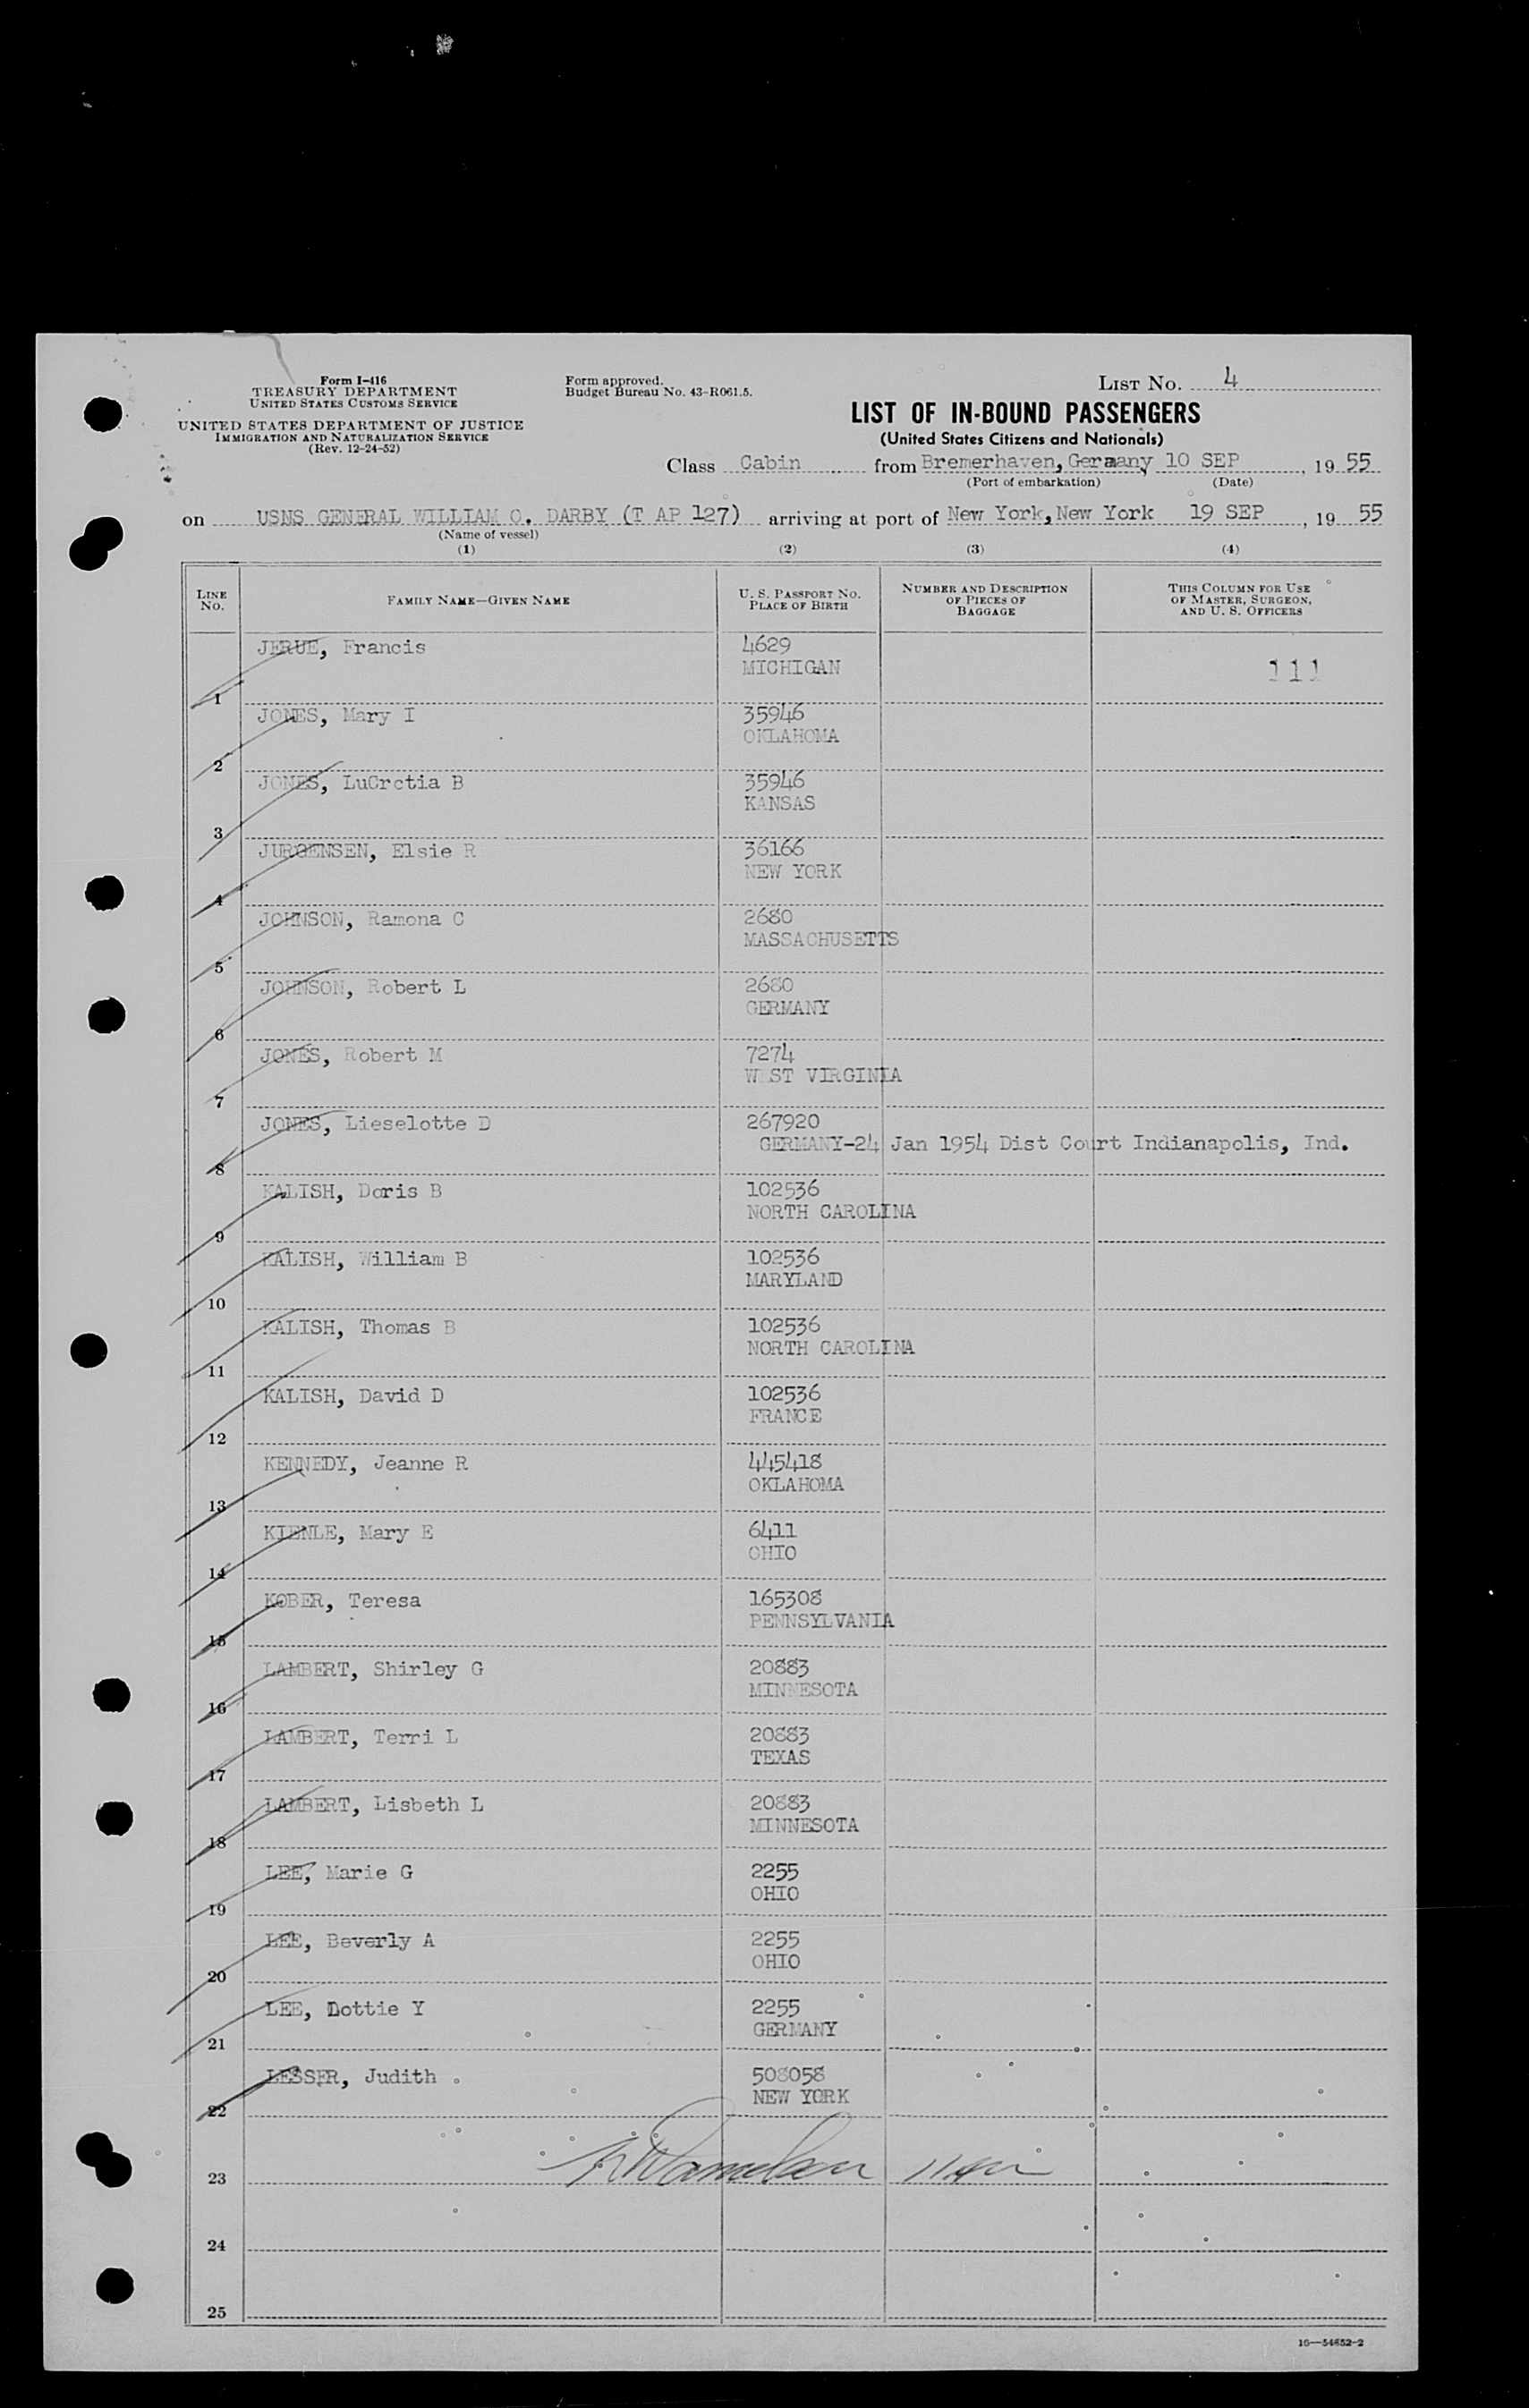 Form I-416
TREASURY DEPARTMENT
UNITED STATES CUSTOMS SERVICE
UNITED STATES DEPARTMENT OF JUSTICE
IMMIGRATION AND NATURALIZATION SERVICE
(Rev. 12-24-52)
Form approved.
Budget Bureau No. 43-R061.5.
LIST NO. 4
LIST OF IN-BOUND PASSENGERS
(United States Citizens and Nationals)
Class Cabin from Bremerhaven, Germany 10 SEP, 19 55
(Port of embarkation) (Date)
on USNS GENERAL WILLIAM O. DARBY (T AP 127) arriving at port of New York, New York 19 SEP, 19 55
(Name of vessel)
(1) (2) (3) (4)
LINE NO. FAMILY NAME—GIVEN NAME U. S. PASSPORT NO. PLACE OF BIRTH NUMBER AND DESCRIPTION OF PIECES OF BAGGAGE THIS COLUMN FOR USE OF MASTER, SURGEON, AND U. S. OFFICERS
JERUE, Francis 4629
MICHIGAN 111
1
JONES, Mary I 35946
OKLAHOMA
2
JONES, LuCretia B 35946
KANSAS
3
JURGENSEN, Elsie R 36166
NEW YORK
4
JOHNSON, Ramona C 2680
MASSACHUSETTS
5
JOHNSON, Robert L 2680
GERMANY
6
JONES, Robert M 7274
WEST VIRGINIA
7
JONES, Lieselotte D 267920
GERMANY-24 Jan 1954 Dist Court Indianapolis, Ind.
8
KALISH, Doris B 102536
NORTH CAROLINA
9
KALISH, William B 102536
MARYLAND
10
KALISH, Thomas B 102536
NORTH CAROLINA
11
KALISH, David D 102536
FRANCE
12
KENNEDY, Jeanne R 445418
OKLAHOMA
13
KIENLE, Mary E 6411
OHIO
14
KOBER, Teresa 165308
PENNSYLVANIA
15
LAMBERT, Shirley G 20883
MINNESOTA
16
LAMBERT, Terri L 20883
TEXAS
17
LAMBERT, Lisbeth L 20883
MINNESOTA
18
LEE, Marie G 2255
OHIO
19
LEE, Beverly A 2255
OHIO
20
LEE, Dottie Y 2255
GERMANY
21
LESSER, Judith 508058
NEW YORK
22
23
24
25
16—54652-2